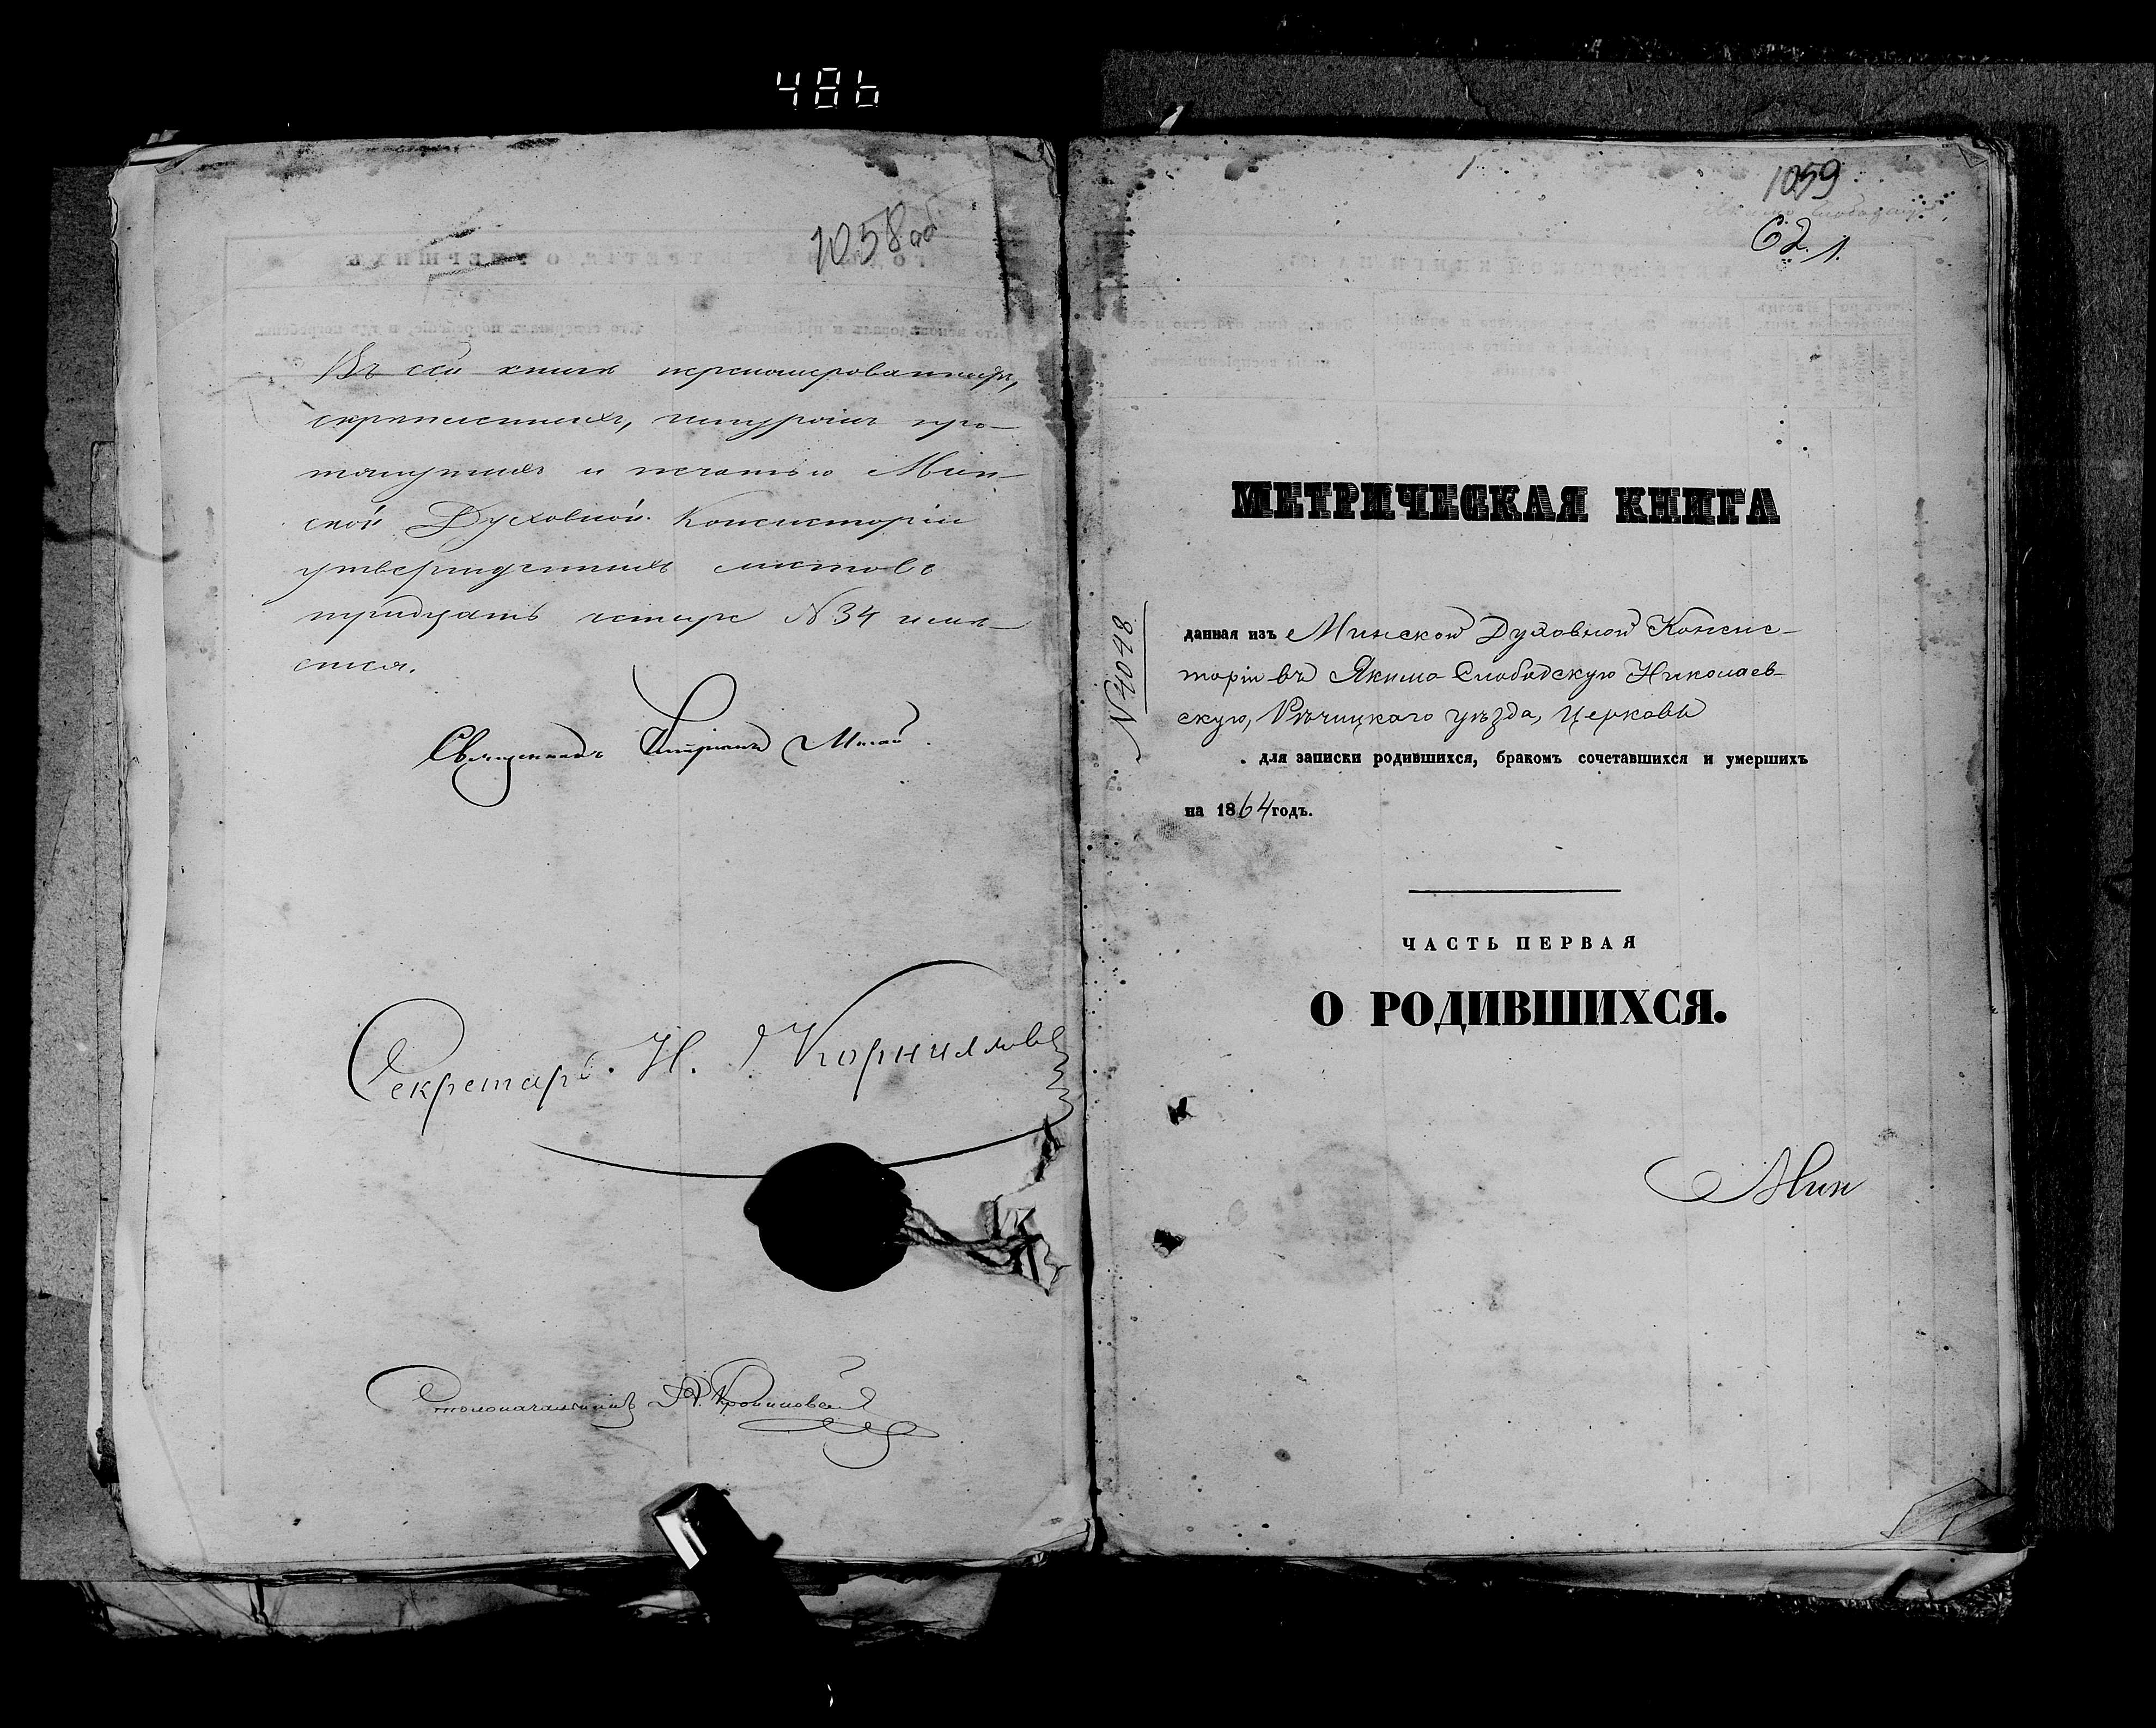 486
1058об
Въ сей книгѣ перенумерованныхъ,
скрѣпленныхъ, шнуромъ про-
тянутыхъ и печатью Мин-
ской Духовной Консисторіи
утвержденныхъ листовъ
тридцать четыре №34 имѣ-
ется.
Священникъ
Секретарь Н. Корниловъ
Столоначальникъ
1059
1.
МЕТРИЧЕСКАЯ КНИГА
№4048
данная изъ Минской Духовной Консис-
торіи въ Якимо Слободскую Николаев-
скую, Рѣчицкаго уѣзда, Церковь
для записки родившихся, бракомъ сочетавшихся и умершихъ
на 1864 годъ.
ЧАСТЬ ПЕРВАЯ
О РОДИВШИХСЯ.
Мин